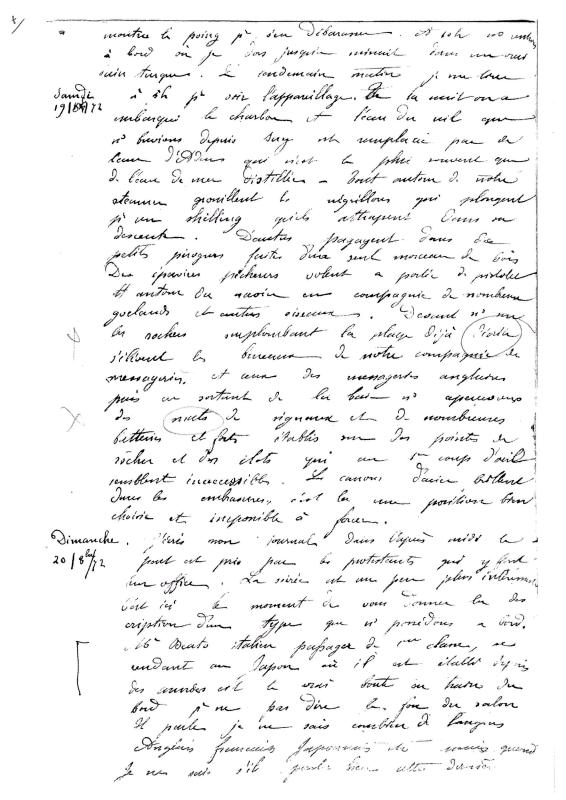 montre le poing pr s'en débarasser. A 10h ns rentrons
à bord où je dors jusqu'à minuit dans un vrai
bain turque. Le lendemain matin je me lève
Samedi
19/8bre/72
à 5h pr voir l'appareillage. la nuit on a
embarqué le charbon et l'eau du nil que
ns buvions depuis Suez est remplacée par de
l'eau d'Aden qui n'est le plus souvent que
de l'eau de mer distillée - Tout autour de notre
steamer grouillent les négrillons qui plongent
pr un shilling qu'ils attrapent dans sa
descente. D'autres pagayent dans de
petits pirogues faites d'un seul morceau de bois
Des éperviers pêcheurs volent à portée de pistolet
et autour du navire en compagnie de nombreux
goelands et autres oiseaux. Devant ns sur
les rochers surplombant la plage déjà
s'élèvent les bureaux de notre compagnie de
messageries, et ceux des messageries anglaises
puis en sortant de la baie ns apercevons
des mats de signaux et de nombreuses
batteries et forts établis sur des pointes de
rocher et des ilots qui au 1er coup d'œil
semblent inaccessibles. Les canons d'acier brillent
dans les embrasures, c'est là une position bien
choisie et impossible à forcer.
Dimanche
20/8bre/72
J'écris mon journal dans l'après midi le
pont est pris par les protestants qui y font
leur office. La soirée est un peu plus
C'est ici le moment de vous donner la des
cription d'un type que ns possédons à bord.
Mr Beato italien passager de 1ere classe, se
rendant au Japon où il est établi depuis
des années est le vrai boute en train du
bord pr ne pas dire le fou du salon
Il parle je ne sais combien de langues
Anglais français Japonais etc mais quand
Je ne sais s'il parle bien cette dernière